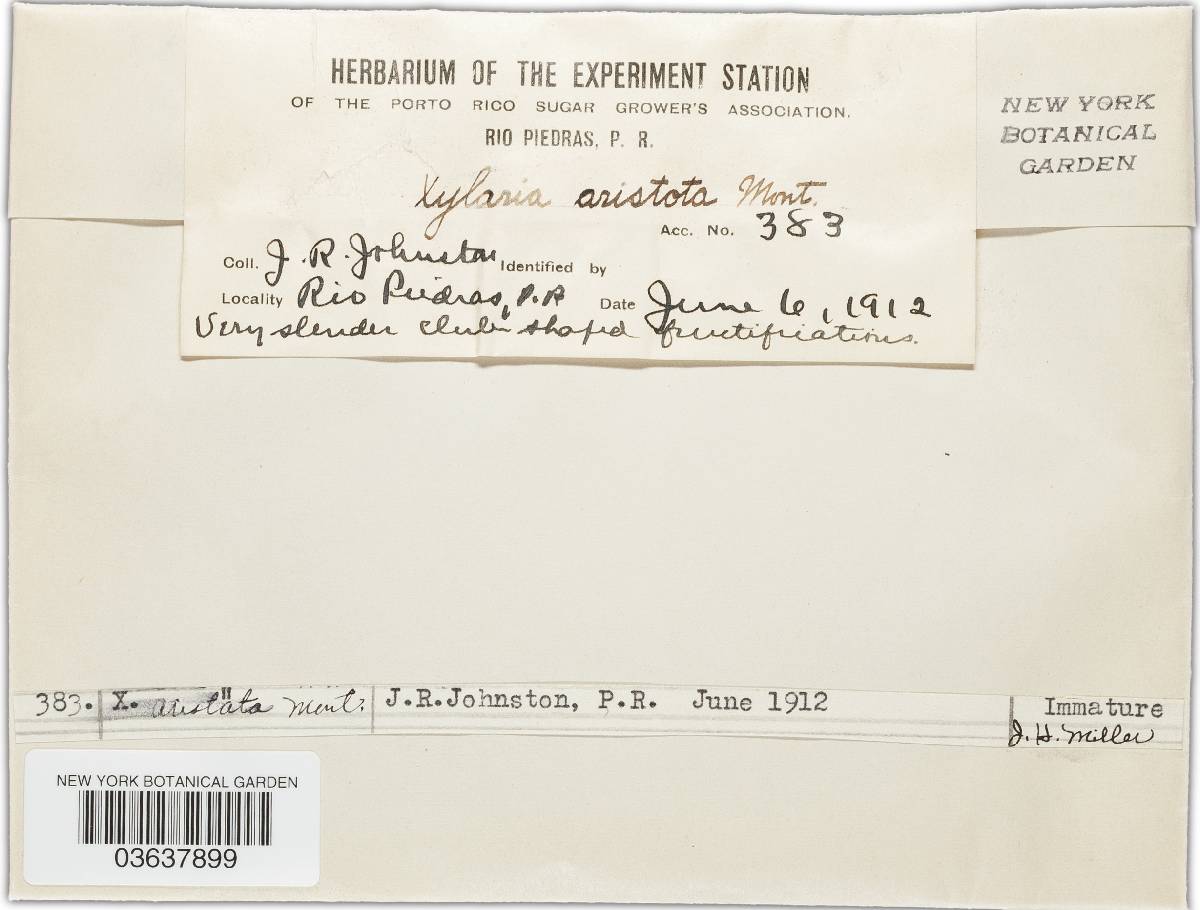 HERBARIUM OF THE EXPERIMENT STATION
OF THE PORTO RICO SUGAR GROWER'S ASSOCIATION.
RIO PIEDRAS, P. R.
NEW YORK
BOTANICAL
GARDEN
Xylaria aristota Mont.
Acc. No. 383
Coll. J. R. Johnston Identified by
Locality Rio Piedras, P.R Date June 6, 1912
Very slender club shaped fructifications.
383. X. aristata Mont. J.R.Johnston, P.R. June 1912 Immature
J. H. Miller
NEW YORK BOTANICAL GARDEN
03637899